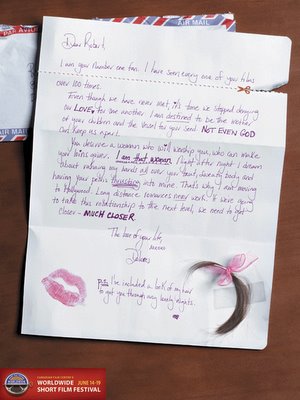 AIR MAIL
PAR AVION
AIR MAIL
Dear Robert,
I am your number one fan. I have seen every one of your films
over 100 times.
Even though we have never met, it's time we stopped denying
our LOVE for one another. I am destined to be the mother
of your children and the vessel for your seed. NOT EVEN GOD
can keep us apart.
You deserve a woman who will worship you, who can make
your loins quiver. I am that woman. Night after night I dream
about rubbing my hands all over your bear, body
and
having your pelvis thrusting into mine. That's why I am moving
to Hollywood. Long distance romances never work. If we're going
to take this relationship to the next level, we need to get
closer - MUCH CLOSER.
The love of your life,
xoxoxo
Dolores
P.S. I've included a lock of my hair
to get you through every lonely night.
CANADIAN FILM CENTRE'S
WORLDWIDE JUNE 14-19
SHORT FILM FESTIVAL